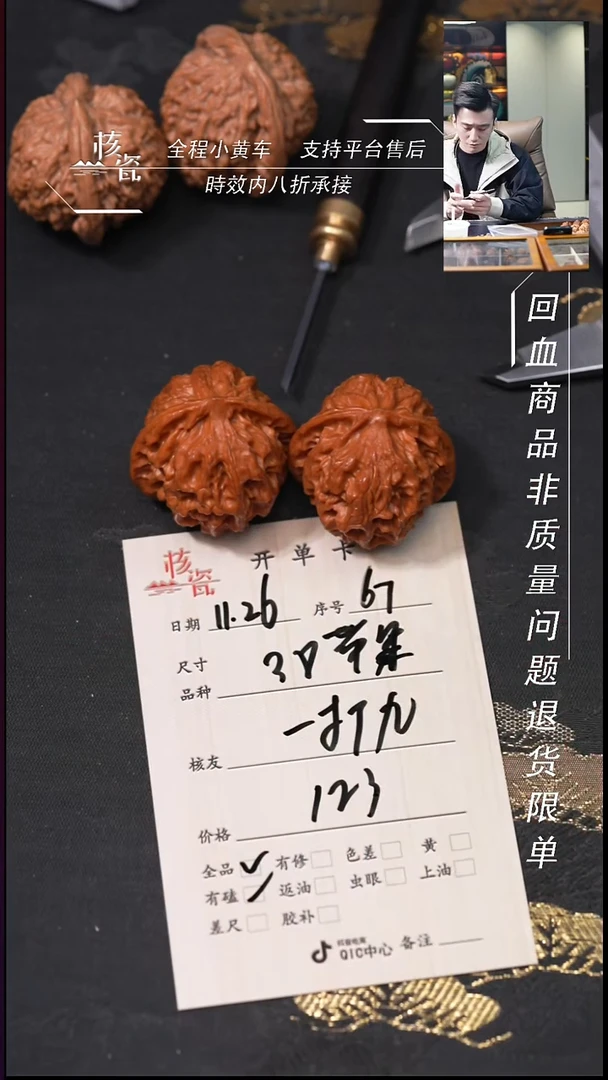 核瓷
全程小黄车 支持平台售后
時效内八折承接
回血商品非质量问题退货限单
核瓷
开单卡
日期 11.26 序号 67
尺寸
品种
核友 一打九
价格 123
全品 ✓ 有修 色差 黄
有磕 ✓ 返油 虫眼 上油
差尺 胶补
抖音电商
QIC中心 备注